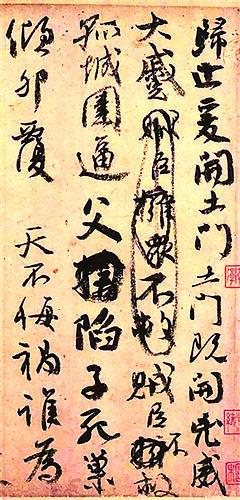 歸止爰開土門土門既開凶威
大蹙賊臣擁衆不救賊臣不救
孤城圍逼父陷子死巢
傾卵覆天不悔禍誰為